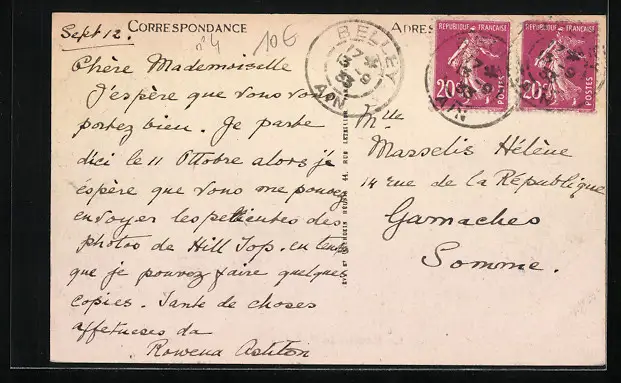 Sept 12.
CORRESPONDANCE
n° 4
10 €
Chère Mademoiselle
J'espère que vous vous
portez bien. Je parte
d'ici le 11 Ottobre alors je
espère que vous me pouvez
envoyer les des
photos de Hill Top. en temps
que je pouvez faire quelques
copies. Tante de choses
affetueses da
Rowena Ashton
BELLEY
AIN
17 *
13 -9
33
REPUBLIQUE FRANÇAISE
20 c
POSTES
REPUBLIQUE FRANÇAISE
20 c
POSTES
Mlle
Masselis Hélène
14 rue de la République
Gamaches
Somme.